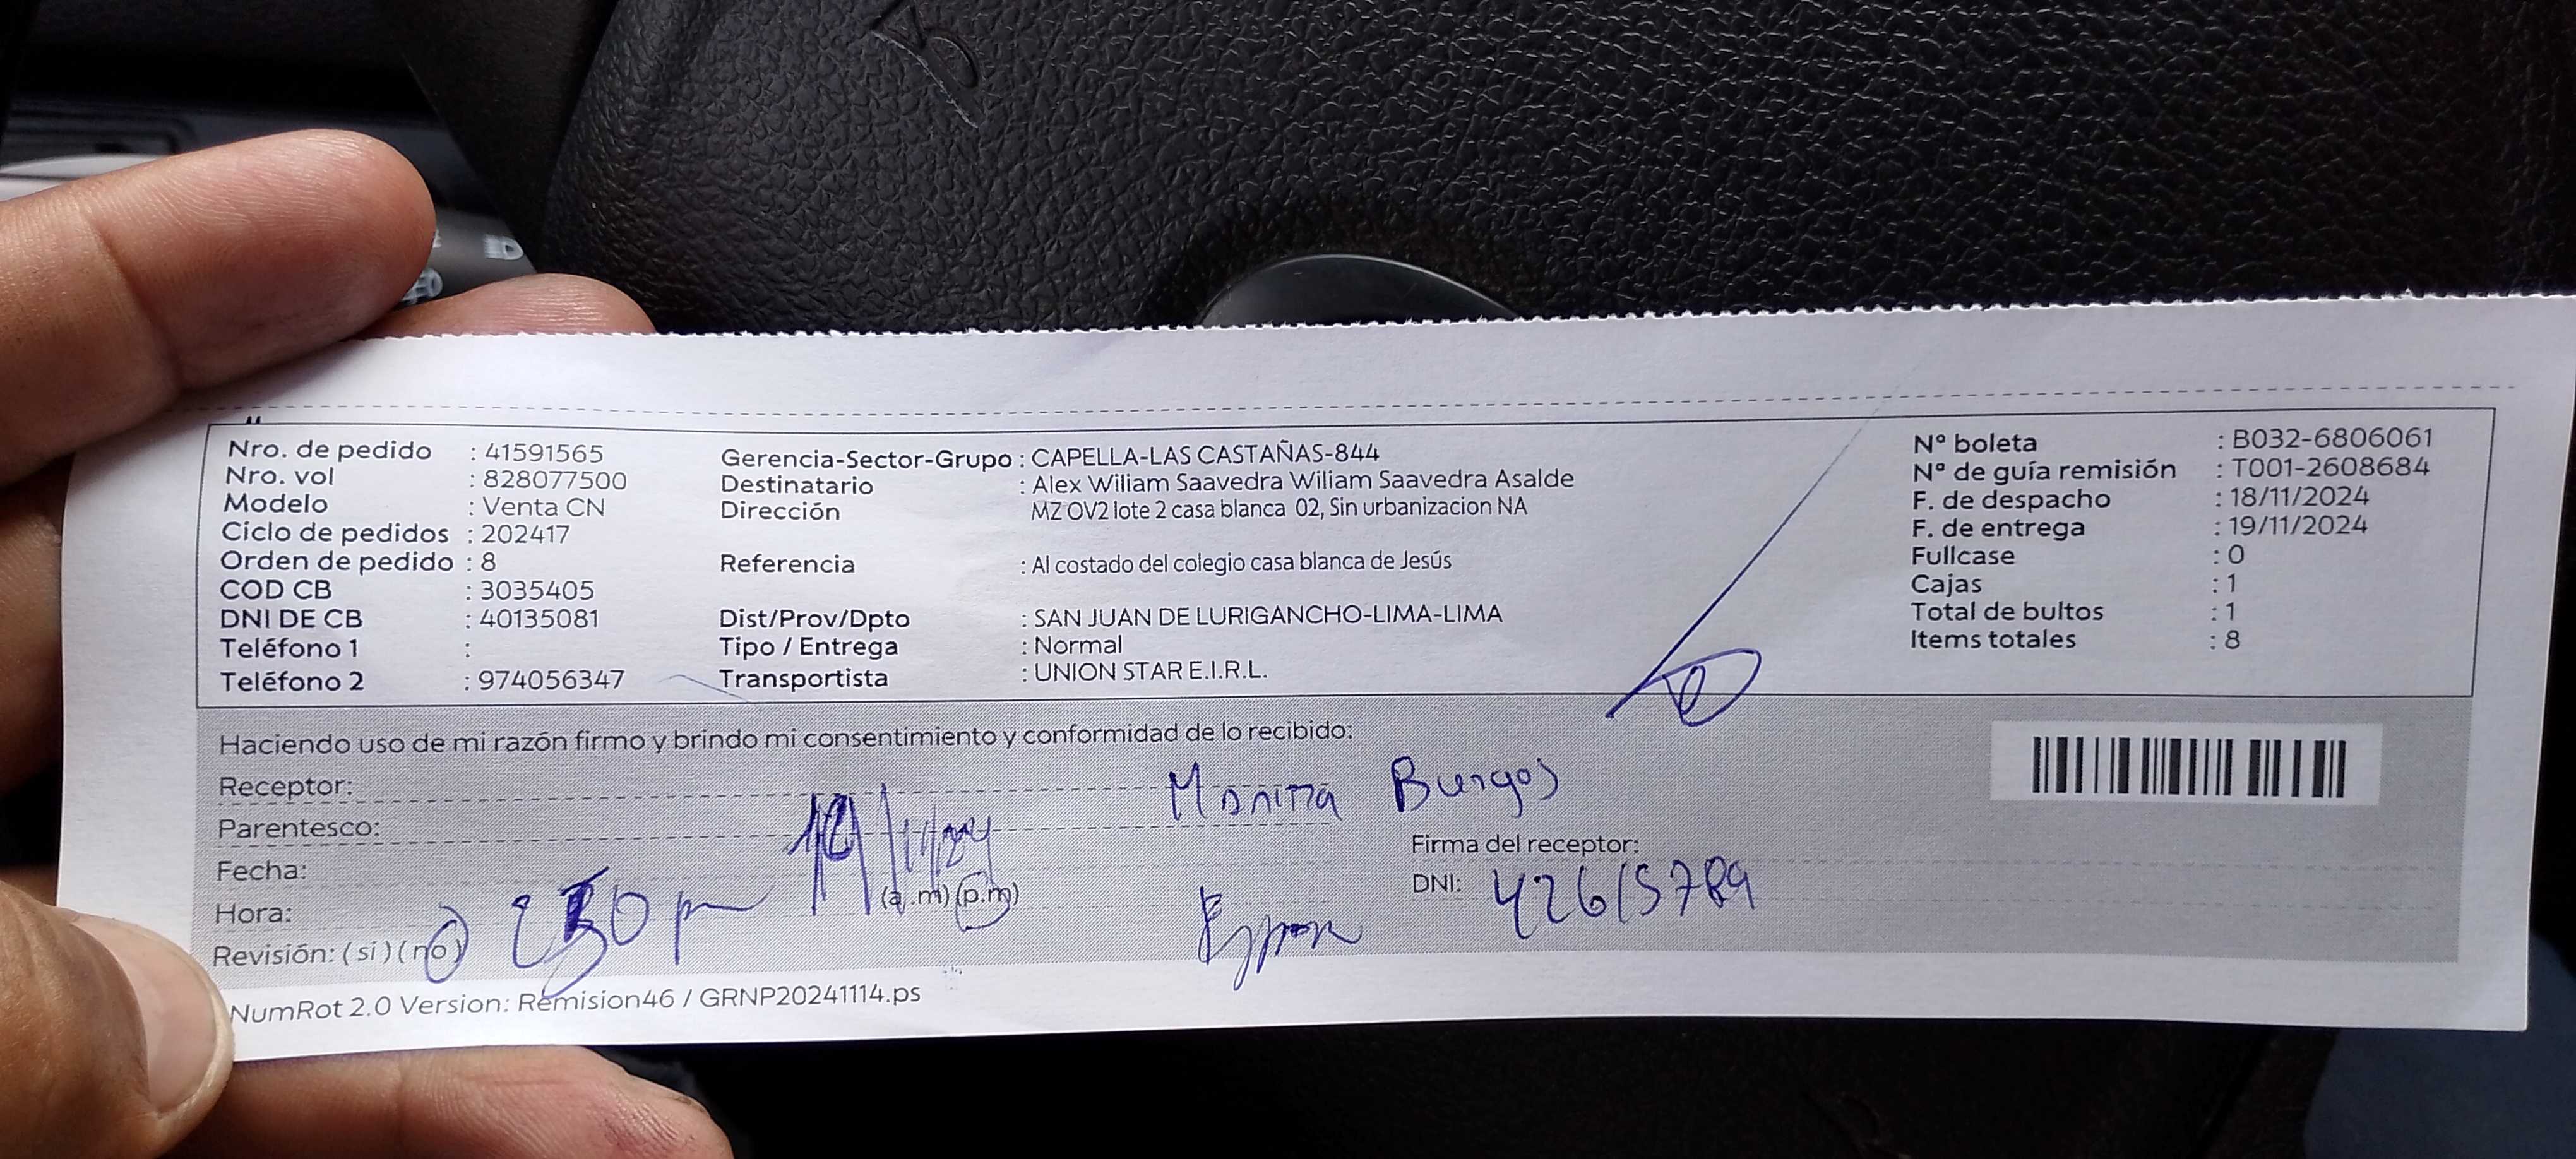 Nro. de pedido : 41591565
Nro. vol : 828077500
Modelo : Venta CN
Ciclo de pedidos : 202417
Orden de pedido : 8
COD CB : 3035405
DNI DE CB : 40135081
Teléfono 1 :
Teléfono 2 : 974056347
Gerencia-Sector-Grupo : CAPELLA-LAS CASTAÑAS-844
Destinatario : Alex Wiliam Saavedra Wiliam Saavedra Asalde
Dirección MZ OV2 lote 2 casa blanca 02, Sin urbanizacion NA
Referencia : Al costado del colegio casa blanca de Jesús
Dist/Prov/Dpto : SAN JUAN DE LURIGANCHO-LIMA-LIMA
Tipo / Entrega : Normal
Transportista : UNION STAR E.I.R.L.
Nº boleta : B032-6806061
Nª de guía remisión : T001-2608684
F. de despacho : 18/11/2024
F. de entrega : 19/11/2024
Fullcase : 0
Cajas : 1
Total de bultos : 1
Items totales : 8
Haciendo uso de mi razón firmo y brindo mi consentimiento y conformidad de lo recibido:
Receptor: Burgos
Parentesco:
Fecha: 19/11/24
Hora: (a.m) (p.m)
Revisión: (si) (no)
Firma del receptor:
DNI: 42615789
NumRot 2.0 Version: Remision46 / GRNP20241114.ps